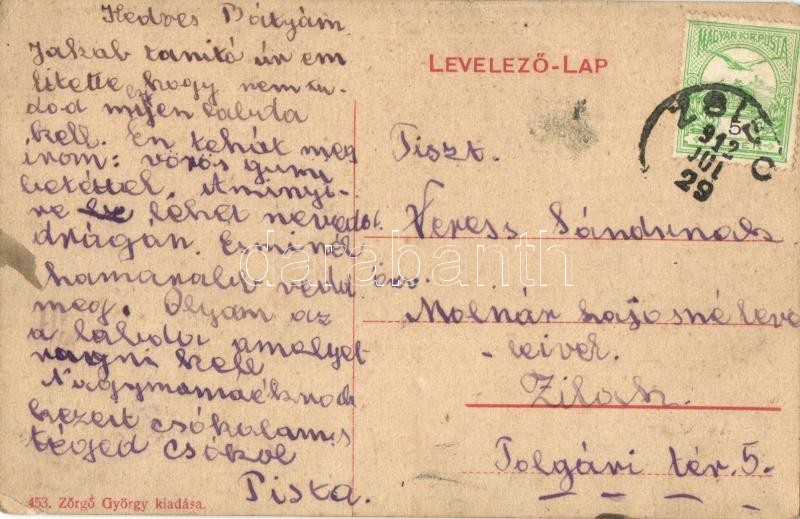 Kedves Bátyám
Jakab tanitó úr em
litette, hogy nem tu
dod milyen labda
kell. Én tehát meg
irom: vörös gumi
betéttel. Amenyi-
re lehet ne vedd
drágán. És minél
hamarabb vedd
meg. Olyan az
a labda amelyet
rugni kell
Nagymamáéknak
kezeit csókolam s
téged csókol
Pista.
453. Zörgő György kiadása.
LEVELEZŐ-LAP
MAGYAR KIR. POSTA
5
912
JUL
29
Tiszt.
Veress Sándornak
Molnár Lajosné leve
leivel.
Zilah.
Tolgári tér. 5.
darabanth